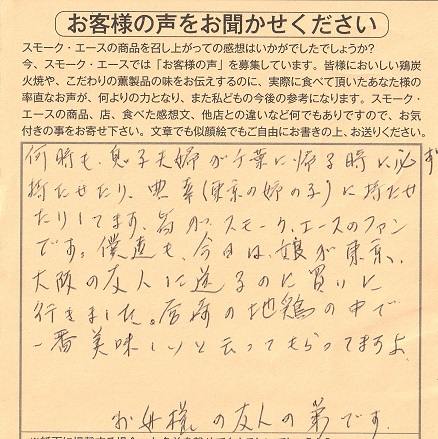 お客様の声をお聞かせください
スモーク・エースの商品を召し上がっての感想はいかがでしたでしょうか?
今、スモーク・エースでは「お客様の声」を募集しています。皆様においしい鶏炭
火焼や、こだわりの薫製品の味をお伝えするのに、実際に食べて頂いたあなた様の
率直なお声が、何よりの力となり、また私どもの今後の参考になります。スモーク・
エースの商品、店、食べた感想文、他店との違いなど何でもありですので、お気
付きの事をお寄せ下さい。文章でも似顔絵でもご自由にお書きの上、お送りください。
何時も、息子夫婦が千葉に帰る時に必ず
持たせたり、典幸(東京の姉の子)に持たせ
たりしてます。皆が、スモーク、エースのファン
です。僕達も、今日は、娘が東京、
大阪の友人に送るのに買いに
行きました。宮崎の地鶏の中で
一番美味しいと云ってもらってますよ
お母様の友人の弟です。